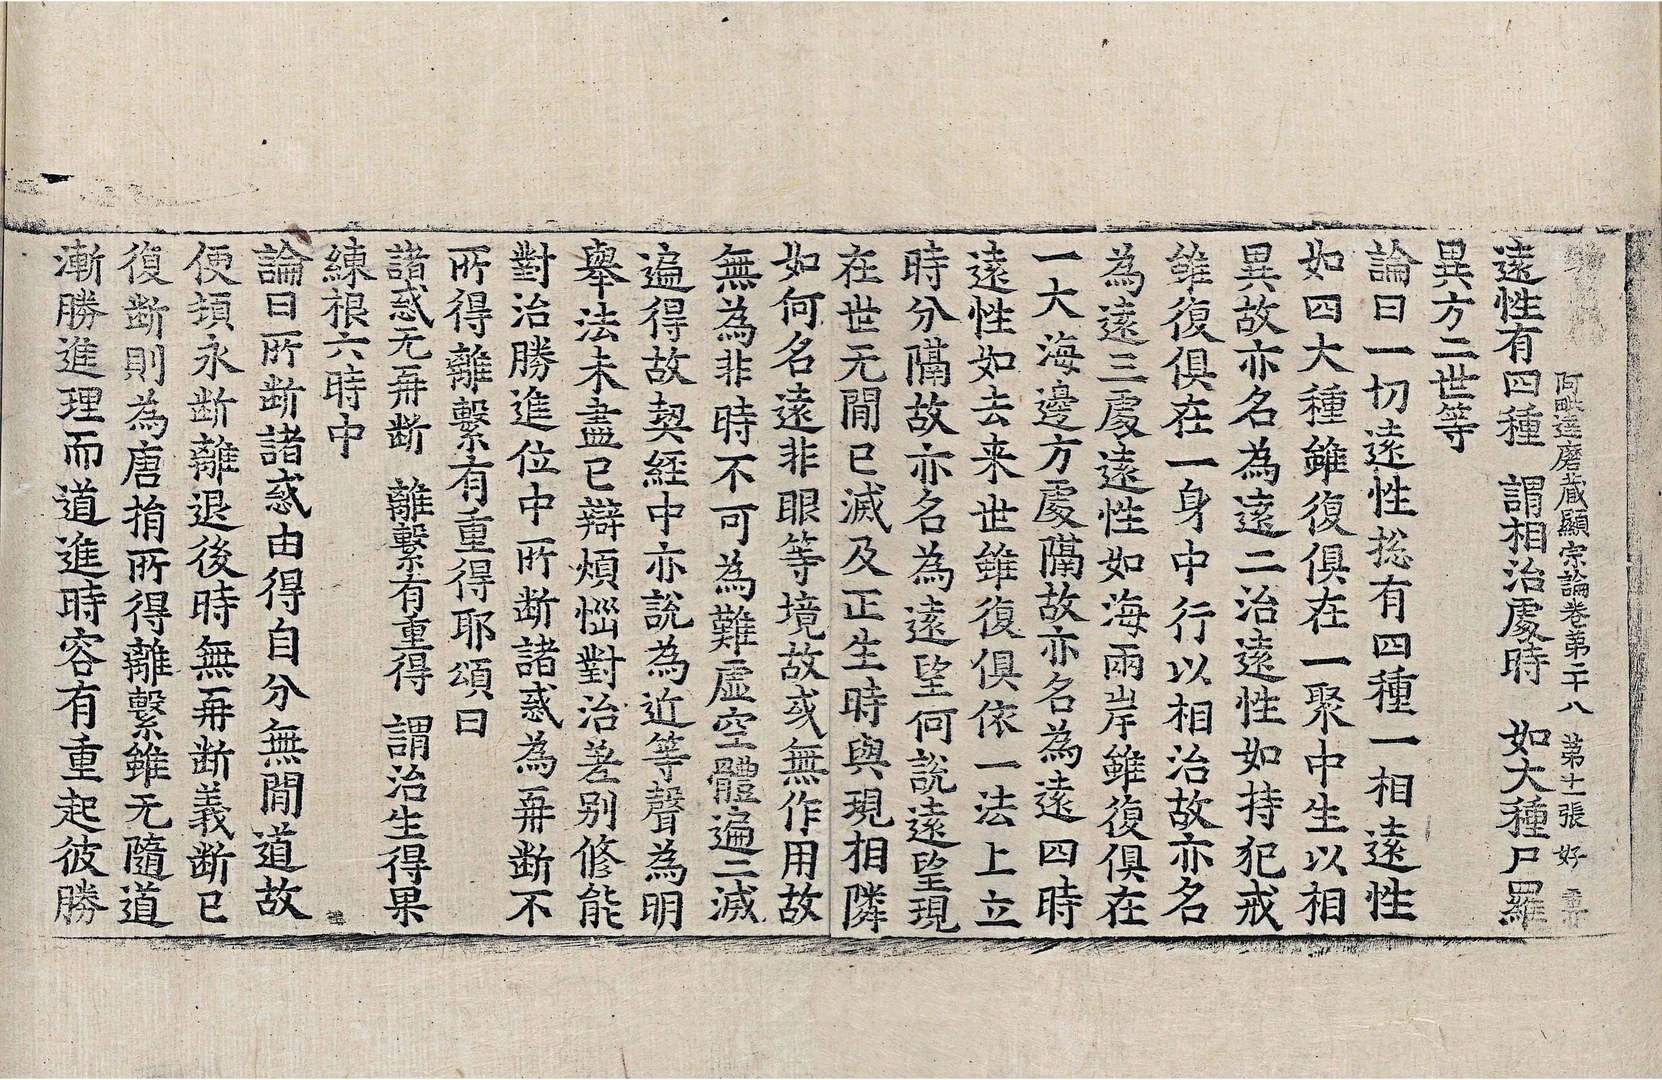 阿毗達磨藏顯宗論卷第二十八 第十一張 好
遠性有四種 謂相治處時 如大種尸羅
異方二世等
論曰一切遠性揔有四種一相遠性
如四大種雖復俱在一聚中生以相
異故亦名為遠二治遠性如持犯戒
雖復俱在一身中行以相治故亦名
為遠三處遠性如海兩岸雖復俱在
一大海邊方處隔故亦名為遠四時
遠性如去来世雖復俱依一法上立
時分隔故亦名為遠望何說遠望現
在世无間已滅及正生時與現相隣
如何名遠非眼等境故或無作用故
無為非時不可為難虛空體遍二滅
遍得故契經中亦說為近等聲為明
舉法未盡已辯煩惱對治差别修能
對治勝進位中所斷諸惑為再斷不
所得離繫有重得耶頌曰
諸惑无再斷 離繫有重得 謂治生得果
練根六時中
論曰所斷諸惑由得自分無間道故
便頓永斷離退後時無再斷義斷已
復斷則為唐捐所得離繫雖无隨道
漸勝進理而道進時容有重起彼勝